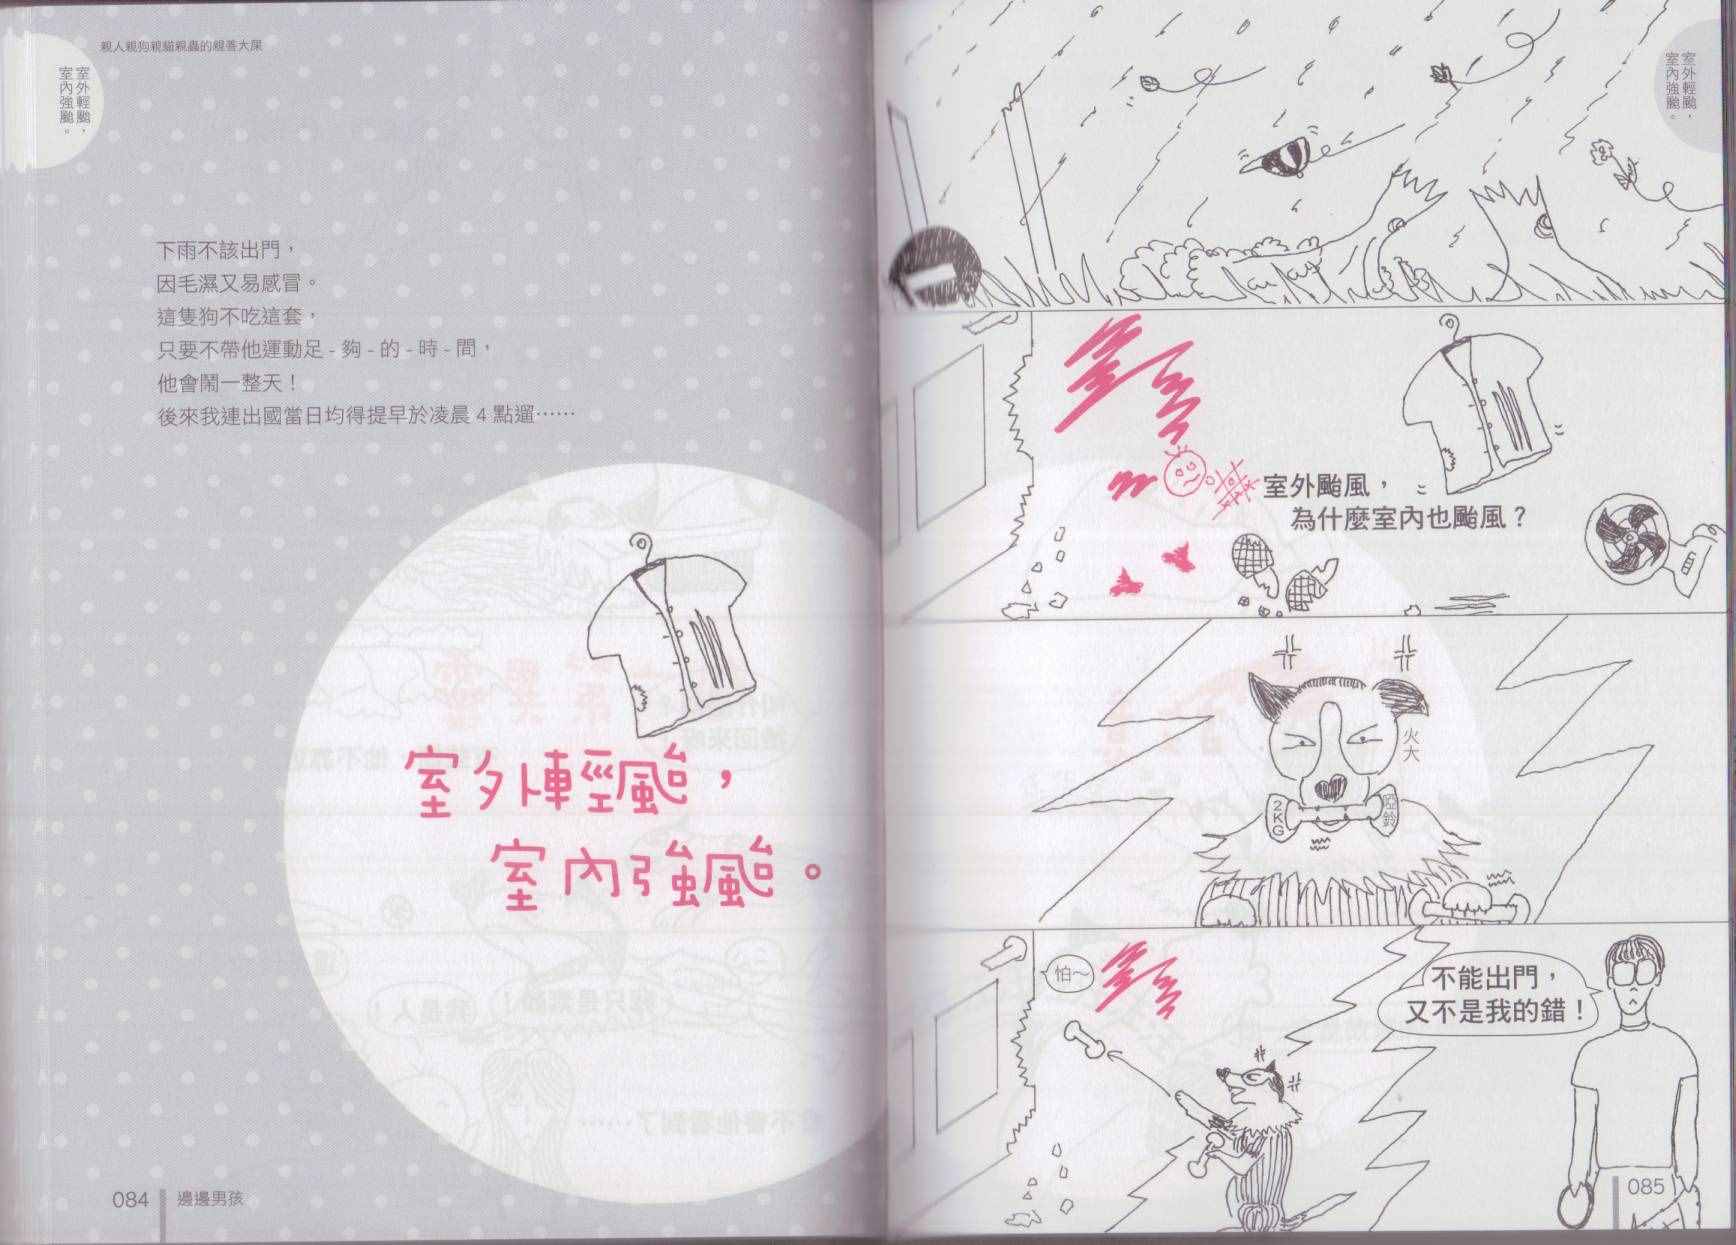 親人親狗親貓親蟲的親善大屎
室外輕颱，
室內強颱。
下雨不該出門，
因毛濕又易感冒。
這隻狗不吃這套，
只要不帶他運動足-夠-的-時-間，
他會鬧一整天！
後來我連出國當日均得提早於凌晨4點遛……
室外輕颱，
室內強颱。
084
邊邊男孩
室外輕颱，
室內強颱。
室外颱風，
為什麼室內也颱風？
火大
2KG
啞鈴
怕～
不能出門，
又不是我的錯！
085